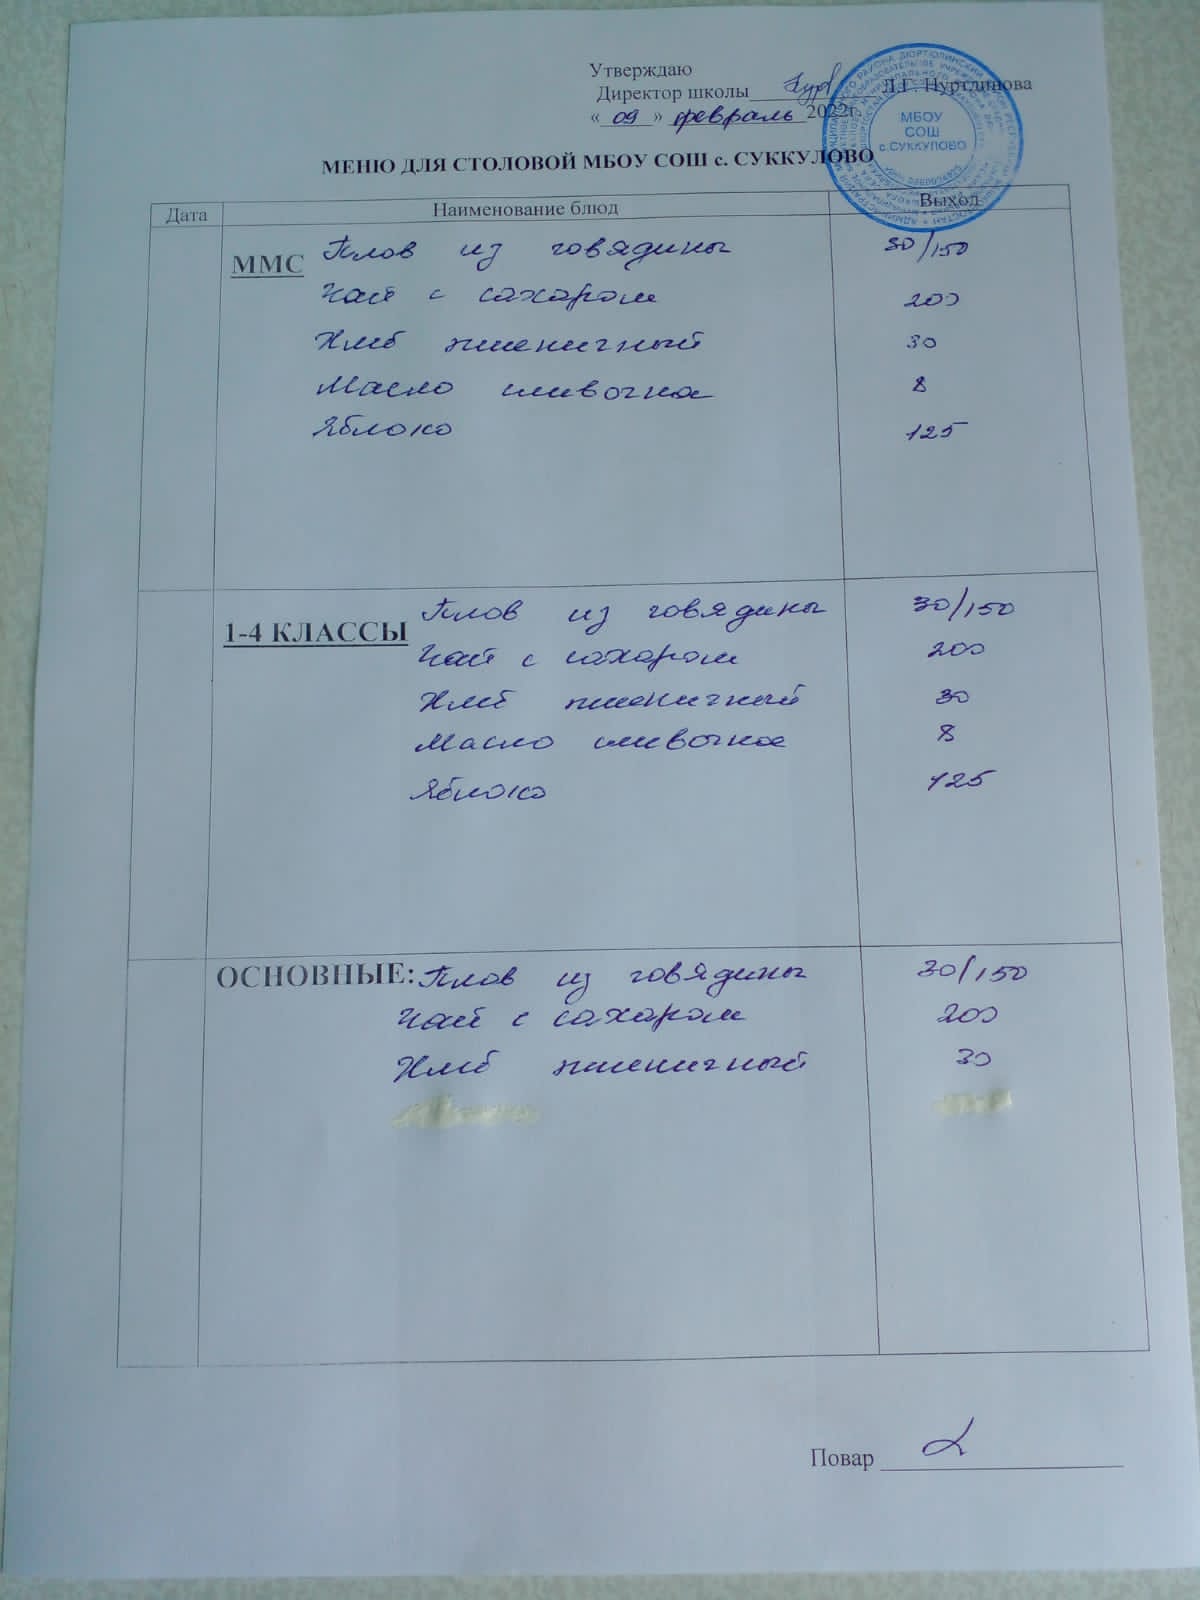 Утверждаю
Директор школы Л.Г. Нуртдинова
« 09 » февраль 2022г.
МБОУ
СОШ
с.СУККУЛОВО
МЕНЮ ДЛЯ СТОЛОВОЙ МБОУ СОШ с. СУККУЛОВО
Дата Наименование блюд Выход
ММС Плов из говядины 30/150
Чай с сахаром 200
Хлеб пшеничный 30
Масло сливочное 8
Яблоко 125
1-4 КЛАССЫ Плов из говядины 30/150
Чай с сахаром 200
Хлеб пшеничный 30
Масло сливочное 8
Яблоко 125
ОСНОВНЫЕ: Плов из говядины 30/150
Чай с сахаром 200
Хлеб пшеничный 30
Повар